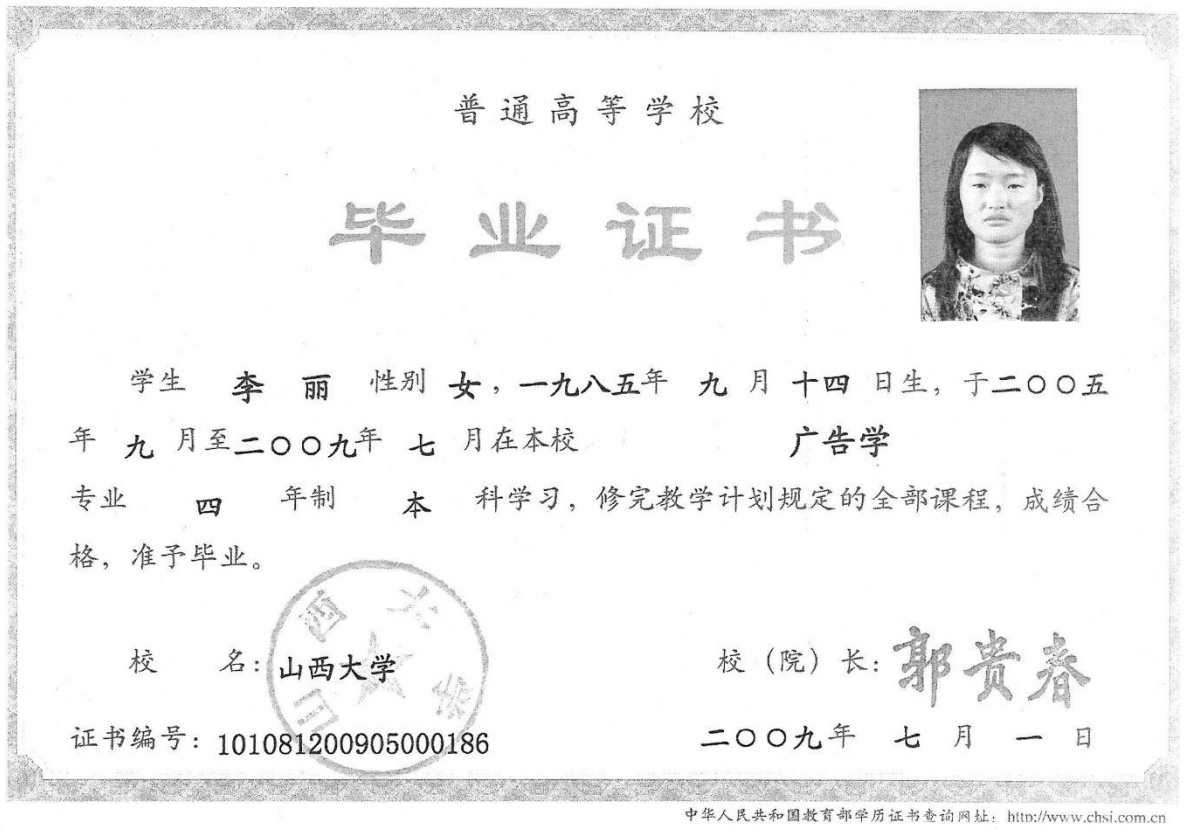 普通高等学校
毕业证书
学生 李 丽 性别 女，一九八五年 九 月 十四 日生，于二〇〇五
年 九 月至二〇〇九年 七 月在本校 广告学
专业 四 年制 本 科学习，修完教学计划规定的全部课程，成绩合
格，准予毕业。
山西大学
校 名：山西大学 校（院）长：郭贵春
证书编号：101081200905000186 二〇〇九年 七 月 一 日
中华人民共和国教育部学历证书查询网址：http://www.chsi.com.cn